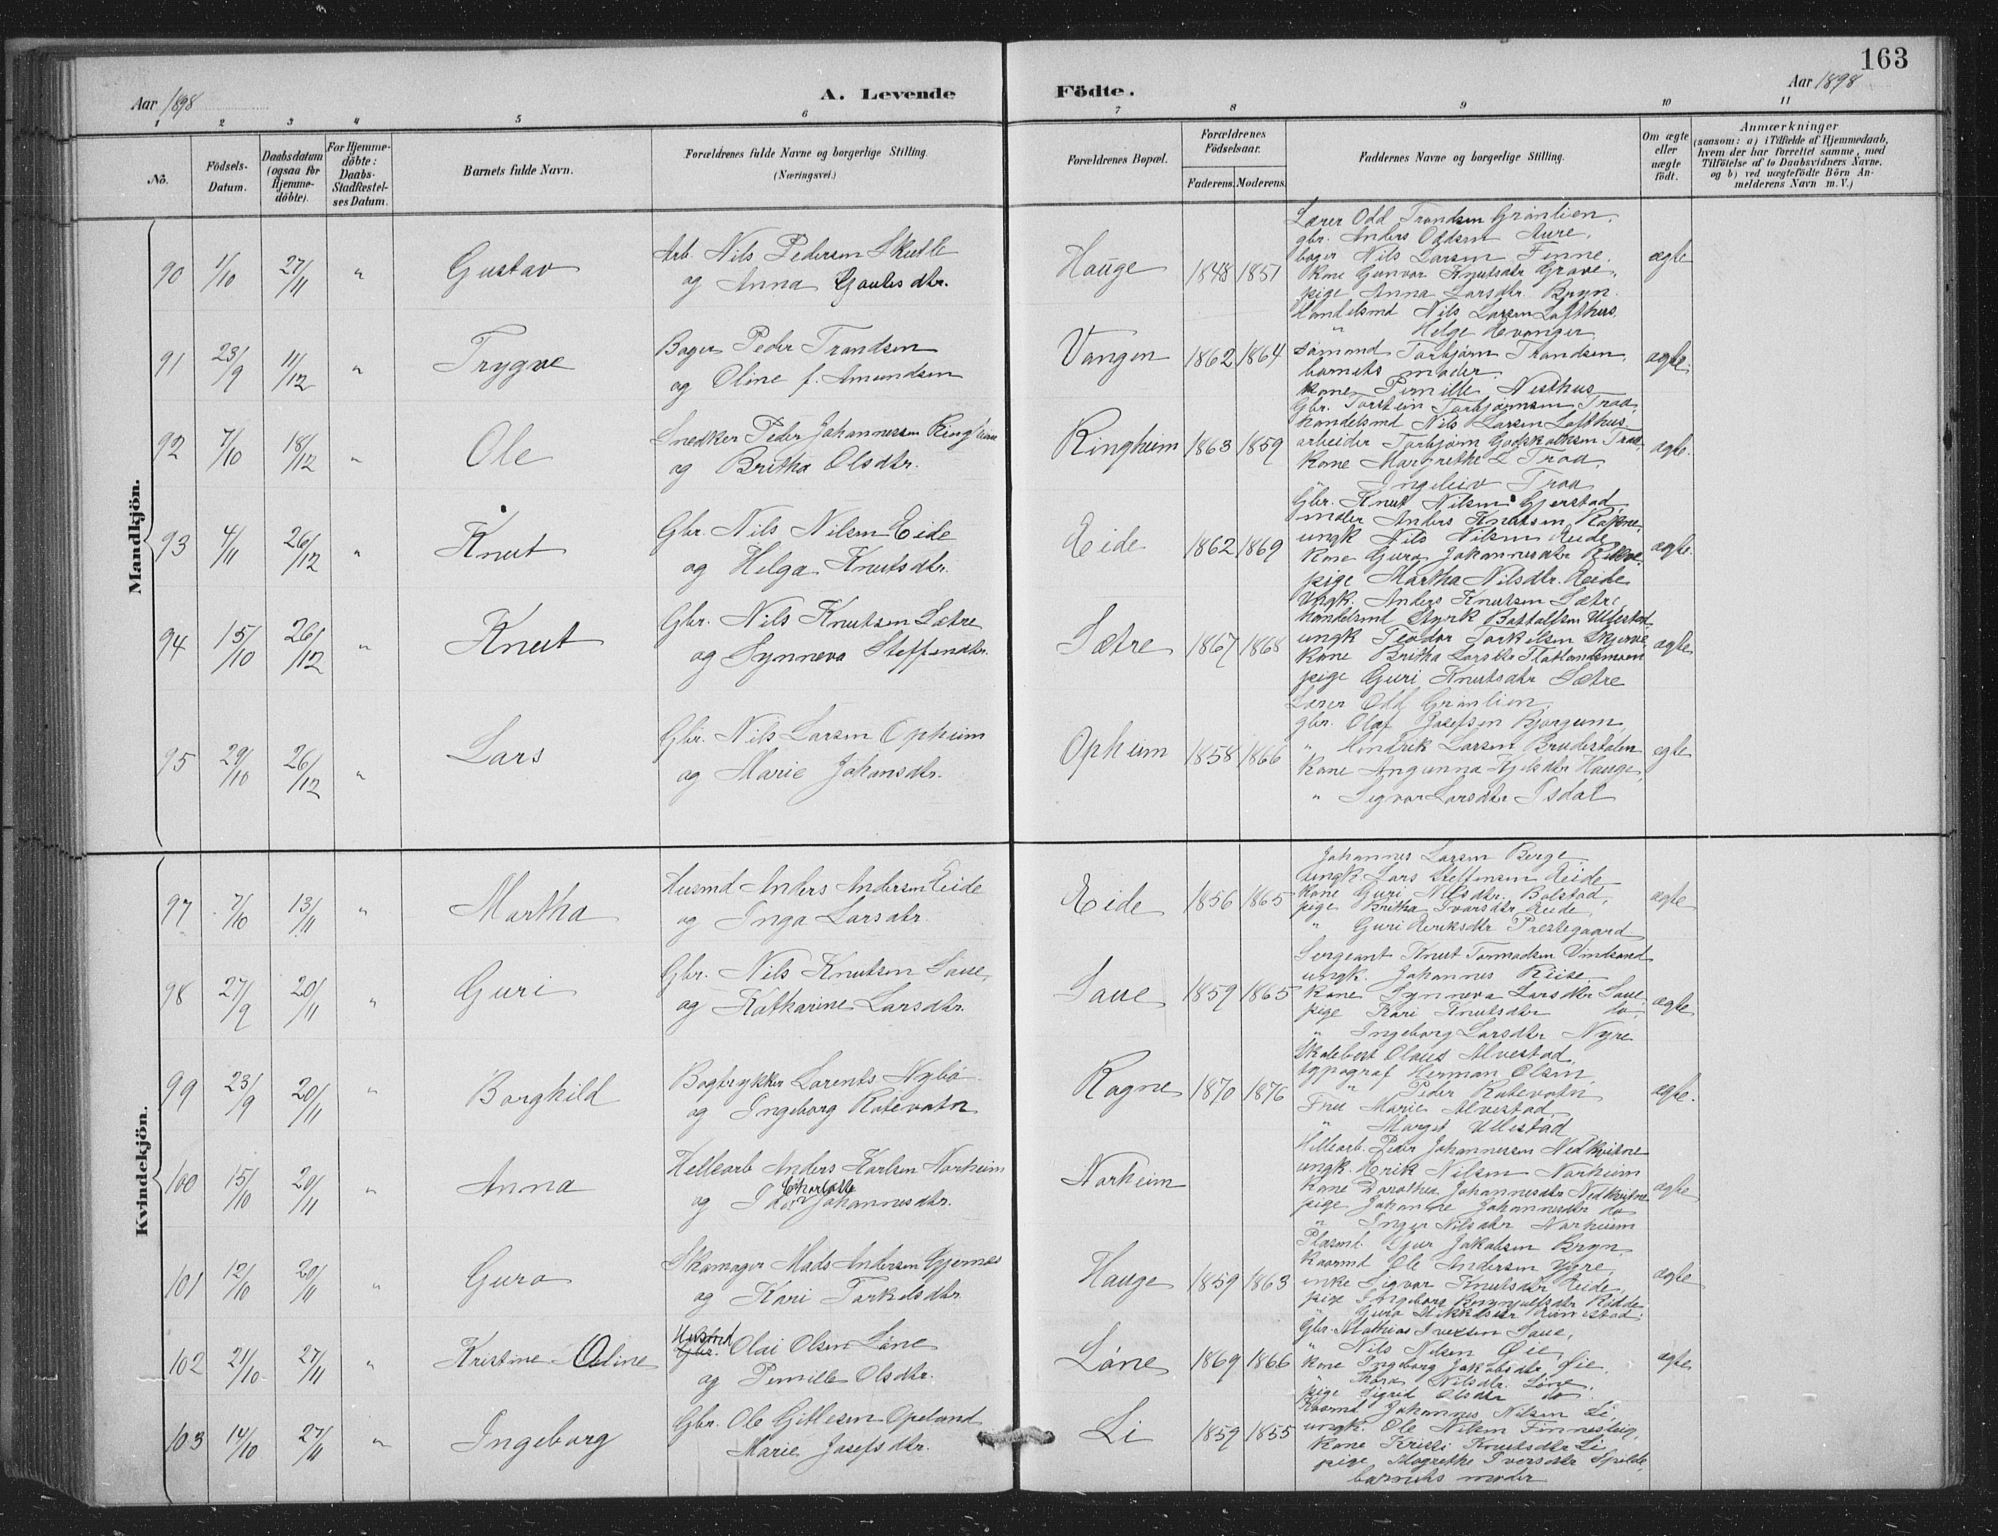 163
Aar 1898
A. Levende Födte.
Aar 1898
1 2 3 4 5 6 7 8 9 10 11
No.
Födsels-Datum.
Daabsdatum (ogsaa for Hjemme-döbte).
For Hjemme-döbte: Daabs-Stadfæstel-ses Datum.
Barnets fulde Navn.
Forældrenes fulde Navne og borgerlige Stilling.
(Næringsvei.)
Forældrenes Bopæl.
Forældrenes Födselsaar.
Faderens. Moderens.
Faddernes Navne og borgerlige Stilling.
Om ægte eller uægte födt.
Anmærkninger
(saasom: a) i Tilfælde af Hjemmedaab,
hvem der har forrettet samme, med
Tilföielse af to Daabsvidners Navne,
og b) ved uægtefödte Börn An-
melderens Navn m. V.)
Mandkjön.
90 1/10 27/11 " Gustav
Arb. Nils Pedersen Skutle
og Anna Gautesdtr.
Hauge 1848 1851
Lærer Odd Trondsen Grönlien,
gbr. Anders Oddsen Aure,
bager Nils Larsen Finne,
Kone Gunvor Knutsdtr Grove,
pige Anna Larsdtr. Bryn.
ægte
91 23/9 11/12 " Trygve
Bager Peder Trondsen
og Oline f. Amundsen
Vangen 1862 1864
Handelsmd Nils Larsen Lofthus,
" Helge Evanger
sömand Torbjörn Trondsen,
barnets moder
Kone Pernille Nesthus
ægte.
92 7/10 18/12 " Ole
Snedker Peder Johannessen Ringheim
og Britha Olsdtr.
Ringheim 1863 1859
Gbr. Torstein Torbjörnsen Traa,
handelsmd Nils Larsen Lofthus
arbeider Torbjörn Godskalksen Traa,
Kone Margrethe L Traa,
" Ingeleiv Traa
ægte.
93 4/11 26/12 " Knut
Gbr. Nils Nilsen Eide
og Helga Knutsdtr.
Eide 1862 1869
Gbr. Knut Nilsen Gjerstad
maler Anders Knutsen Rokne,
ungk Nils Nilsen Eide
Kone Guro Johannesdtr Rekve,
pige Martha Nilsdtr. Eide
ægte.
94 15/10 26/12 " Knut
Gbr. Nils Knutsen Sætre
og Synneva Steffensdtr.
Sætre 1867 1868
Ungk. Anders Knutsen Sætre
handelsmd Styrk Ullestad,
ungk Teodor Torkilsen Skjerve
Kone Britha Larsdtr Flatlandsmoen
pige Guri Knutsdtr Sætre
ægte
95 29/10 26/12 " Lars
Gbr. Nils Larsen Opheim
og Marie Johansdtr.
Opheim 1858 1866
Lærer Odd Grönlien,
gbr. Olaf Josefsen Bjorgum
" Hendrik Larsen Brudestolen
Kone Angunna Kjelsdtr Hauge,
" Sigvor Larsdtr Isdal
ægte
Kvindekjön.
97 7/10 13/11 " Martha
Husmd Anders Andersen Eide
og Inga Larsdtr.
Eide 1856 1865
Johannes Larsen Berge
ungk Lars Steffensen Eide
Kone Guri Nilsdtr Bolstad,
pige Britha Ivarsdtr Eide,
" Guri Eeriksdtr Prestegaard
ægte
98 27/9 20/11 " Guri
Gbr. Nils Knutsen Saue,
og Katharine Larsdtr.
Saue 1859 1865
Sergeant Knut Tormodsen Vindsand
ungk. Johannes Rüse
Kone Synneva Larsdtr Saue,
pige Kari Knutsdtr do,
" Ingeborg Larsdtr Nyre
ægte
99 23/9 20/11 " Borghild
Bogtrykker Lorents Nybö
og Ingeborg Rotevatn
Rogne 1870 1876
Skolebest Olaus Alvestad,
typograf Herman Olsen,
" Peder Rotevatn,
Frue Marie Alvestad,
" Marget Ullestad
ægte.
100 15/10 20/11 " Anna
Hellearb Anders Karlsen Norheim
og Charlotte Johannesdtr.
Norheim
Hellearb. Peder Johannessen Nedkvitne
ungk. Erik Nilsen Norheim
Kone Dorothea Johannesdtr Nedkvitne
pige Johanne Johannesdtr do
" Inger Nilsdtr Norheim
ægte
101 12/10 20/11 " Guro
Skomager Mads Andersen Gjernes
og Kari Torkelsdtr.
Hauge 1859 1863
Plasmd. Sjur Jakobsen Bryn,
Kaarmd Ole Andersen Ygre,
enke Sigvor Knutsdtr Eide,
pige Ingeborg Brynjulfsdtr Rödde
" Guro
ægte
102 21/10 27/11 " Kristine Oline
Husmd Gbr. Olai Olsen Löne
og Pernille Olsdtr.
Löne 1869 1866
Gbr. Mathias Iversen Saue,
" Nils Nilsen Öie
Kone Ingeborg Jakobsdtr. Öie,
" Kora Nilsdtr. Löne,
pige Sigrid Olsdtr do
ægte
103 14/10 27/11 " Ingeborg
Gbr. Ole Gitlesen Opeland
Marie Josefsdtr.
Li 1859 1855
Kaarmd Johannes Nilsen Li,
ungk. Ole Nilsen Finnesteig,
Kone Kristi Knutsdtr Li,
pige Magrethe Iversdtr Spilde,
barnets moder